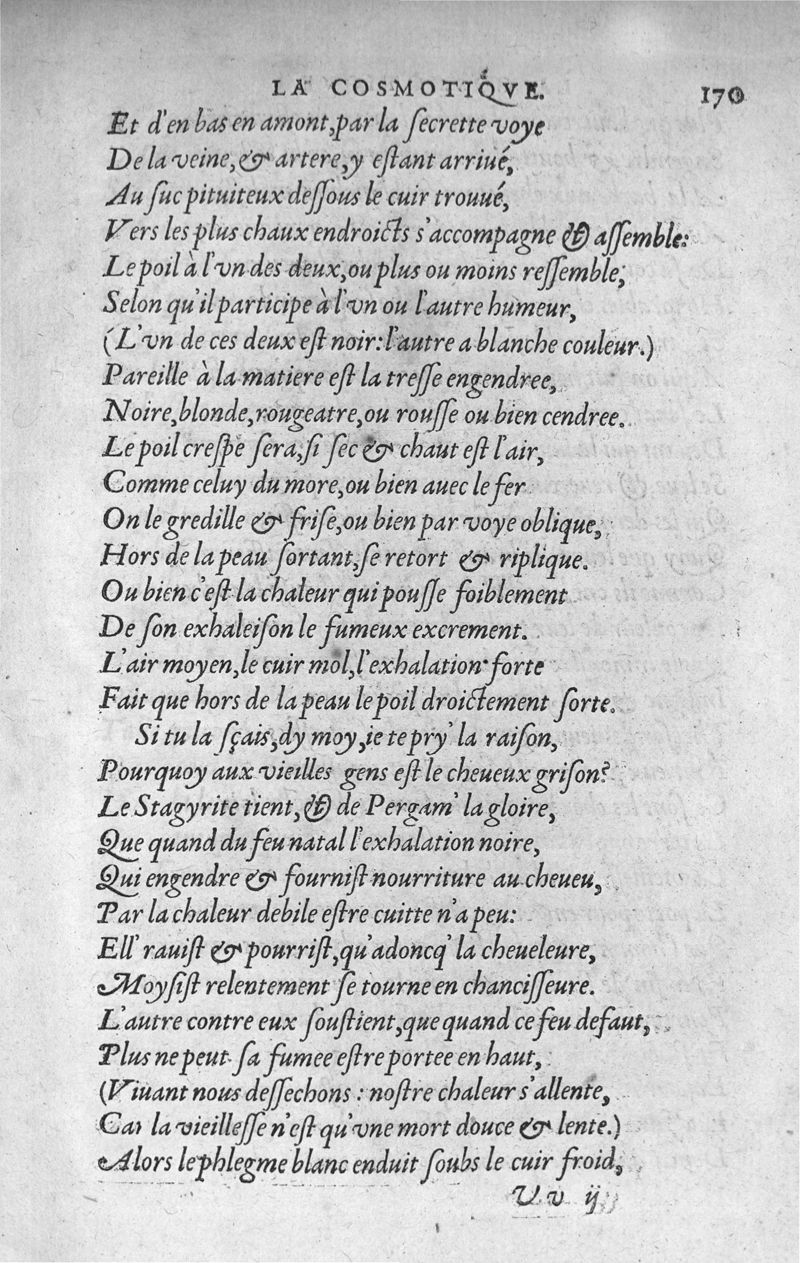 LA COSMOTIQVE. 170
Et d'en bas en amont, par la ſecrette voye
De la veine, & artere, y eſtant arriué,
Au ſuc pituiteux deſſous le cuir trouué,
Vers les plus chaux endroicts s'accompagne & aſſemble:
Le poil à l'vn des deux, ou plus ou moins reſſemble,
Selon qu'il participe à l'vn ou l'autre humeur,
(L'vn de ces deux eſt noir: l'autre a blanche couleur.)
Pareille à la matiere eſt la treſſe engendree,
Noire, blonde, rougeatre, ou rouſſe ou bien cendree.
Le poil creſpe ſera, ſi ſec & chaut eſt l'air,
Comme celuy du more, ou bien auec le fer
On le gredille & friſe, ou bien par voye oblique,
Hors de la peau ſortant, ſe retort & riplique.
Ou bien c'eſt la chaleur qui pouſſe foiblement
De ſon exhaleiſon le fumeux excrement.
L'air moyen, le cuir mol, l'exhalation forte
Fait que hors de la peau le poil droictement ſorte.
Si tu la ſçais, dy moy, ie te pry' la raiſon,
Pourquoy aux vieilles gens eſt le cheueux griſon?
Le Stagyrite tient, & de Pergam' la gloire,
Que quand du feu natal l'exhalation noire,
Qui engendre & fourniſt nourriture au cheueu,
Par la chaleur debile eſtre cuitte n'a peu:
Ell' rauiſt & pourriſt, qu'adoncq' la cheueleure,
Moyſiſt relentement ſe tourne en chanciſſeure.
L'autre contre eux ſouſtient, que quand ce feu defaut,
Plus ne peut ſa fumee eſtre portee en haut,
(Viuant nous deſſechons: noſtre chaleur s'allente,
Car la vieilleſſe n'eſt qu'vne mort douce & lente.)
Alors le phlegme blanc enduit ſoubs le cuir froid,
Vv ij